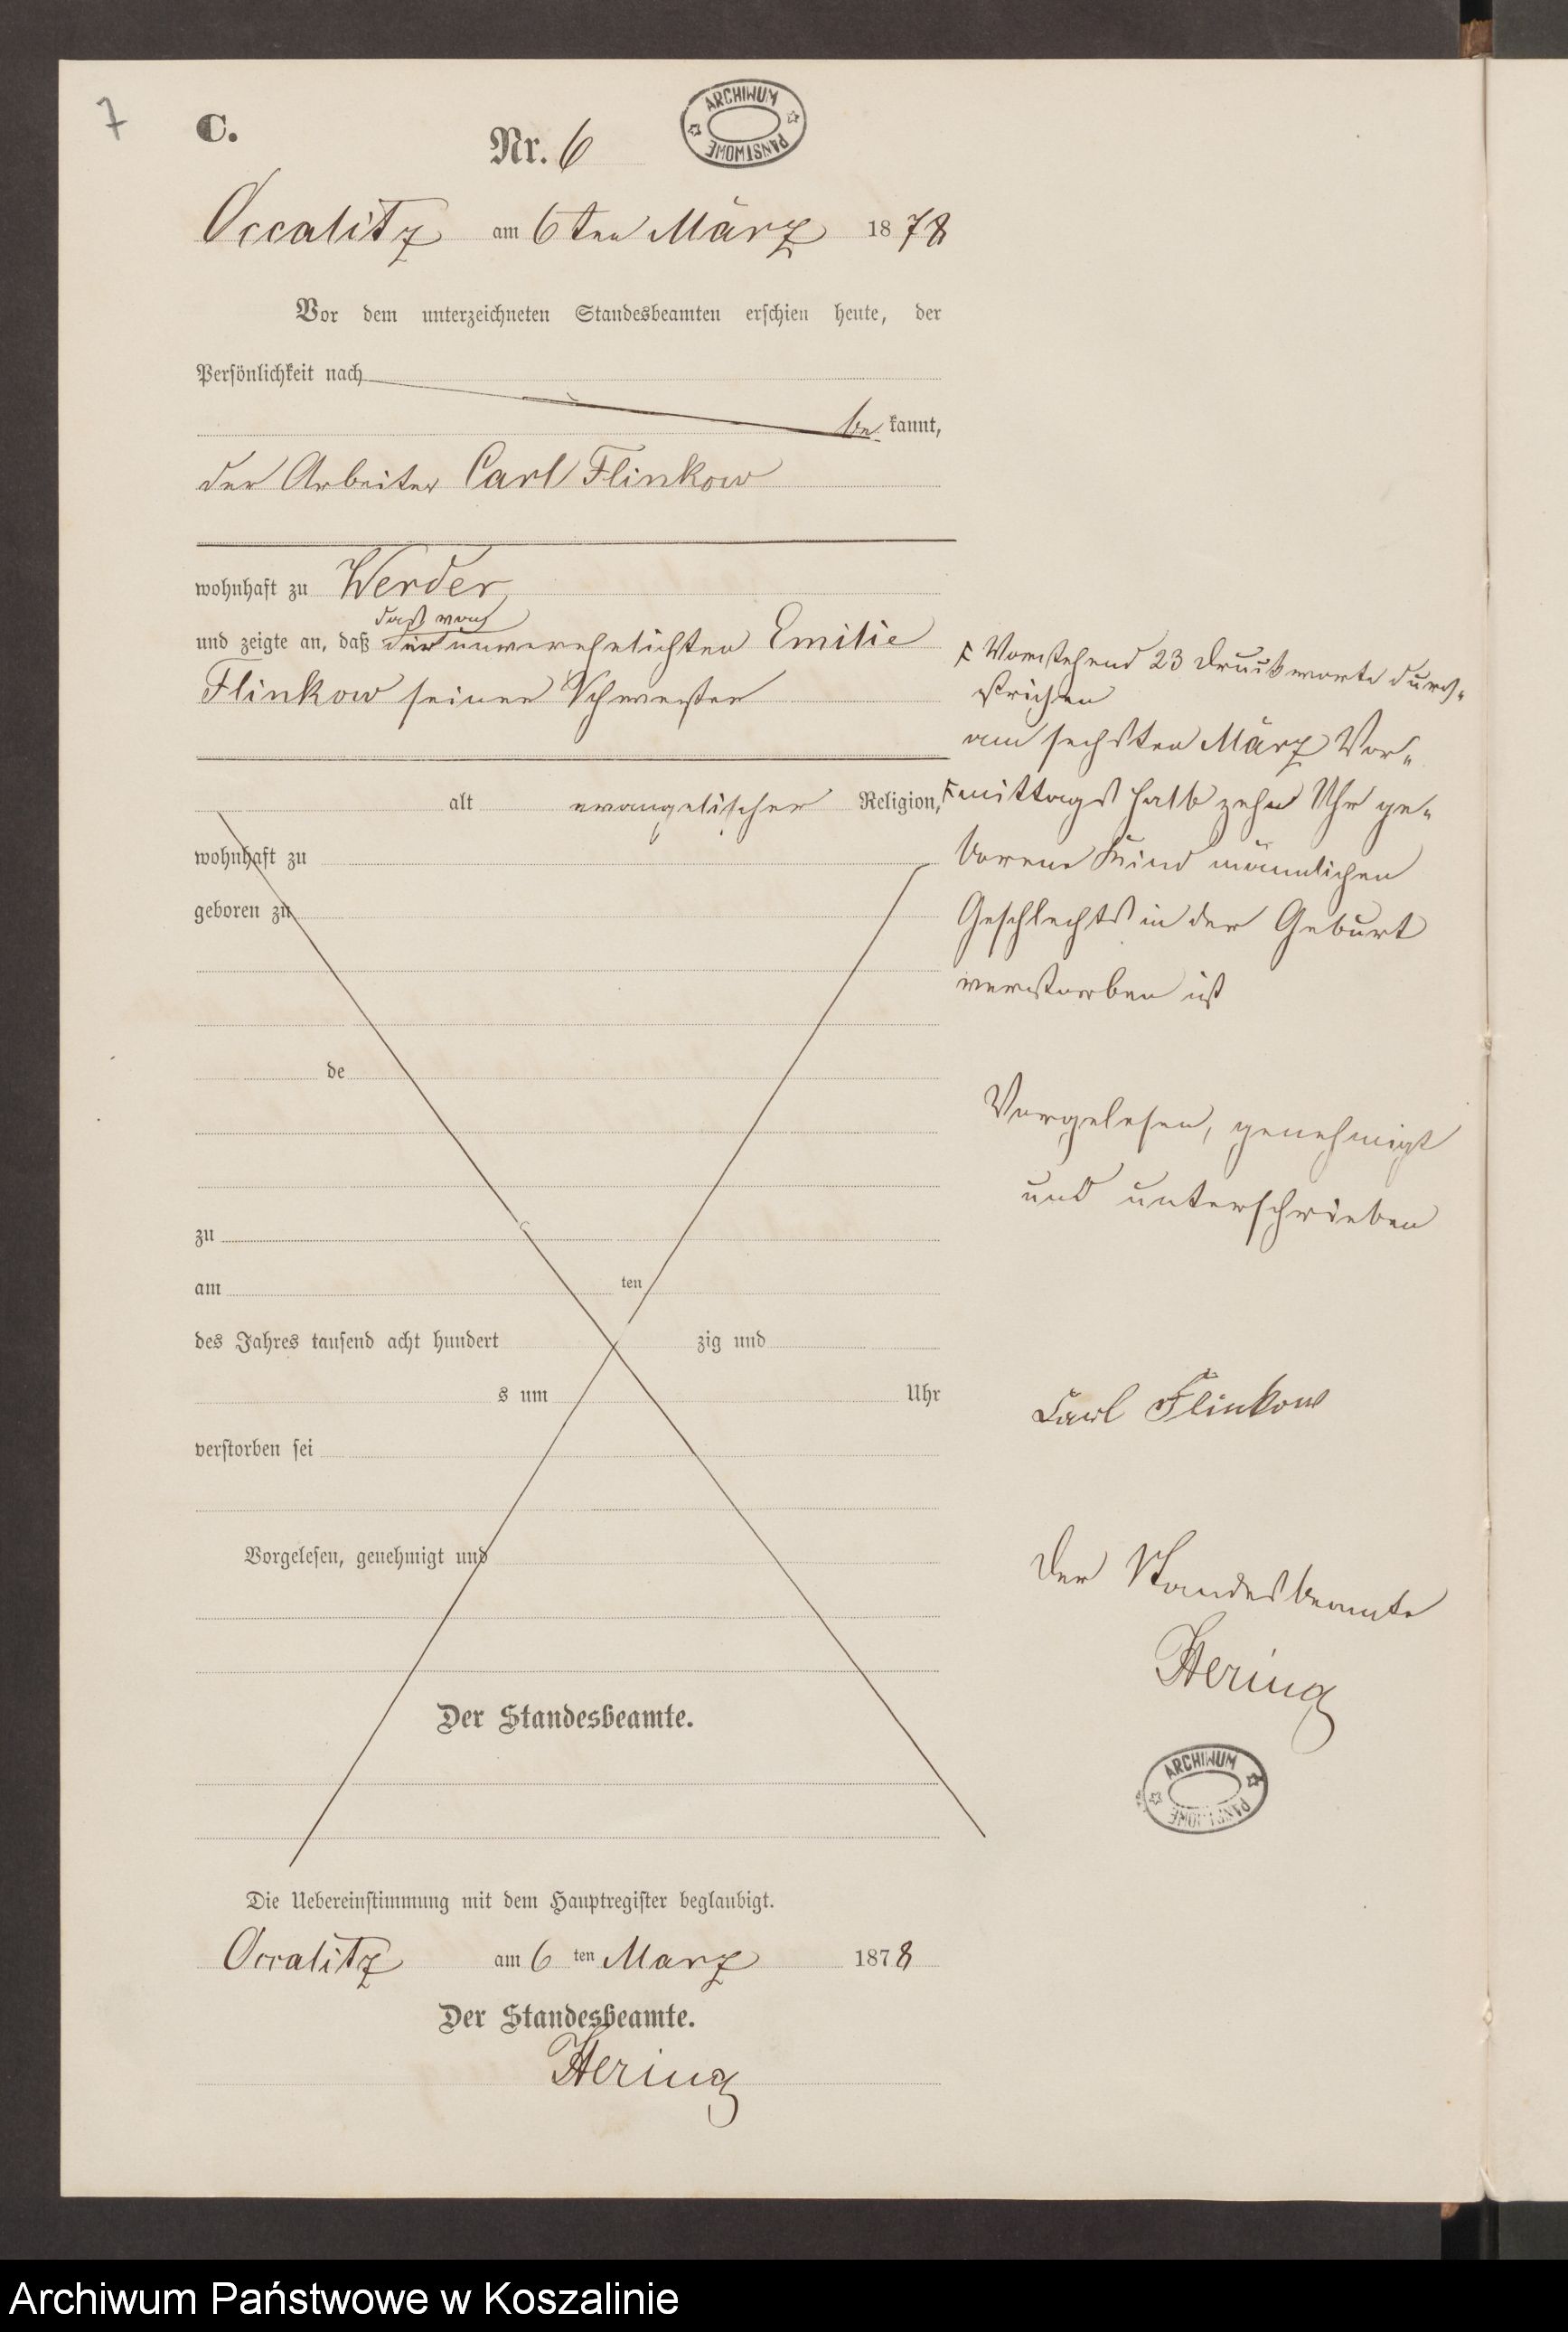 7
C.
Nr. 6
ARCHIWUM PAŃSTWOWE
Occalitz am 6ten März 1878
Vor dem unterzeichneten Standesbeamten erschien heute, der
Persönlichkeit nach
be kannt,
der Arbeiter Carl Flinkow
wohnhaft zu Werder
das von
und zeigte an, daß der unverehelichten Emilie
Flinkow seiner Schwester
alt evangelischer Religion,
wohnhaft zu
geboren zu
de
zu
am ten
des Jahres tausend acht hundert zig und
s um Uhr
verstorben sei
Vorgelesen, genehmigt und
Der Standesbeamte.
Vorstehend 23 Druckworte durch-
strichen
am sechsten März Vor-
mittags halb zehn Uhr ge-
borene Kind männlichen
Geschlechts in der Geburt
verstorben ist
Vorgelesen, genehmigt
und unterschrieben
Carl Flinkow
Der Standesbeamte
Hering
ARCHIWUM PAŃSTWOWE
Die Uebereinstimmung mit dem Hauptregister beglaubigt.
Occalitz am 6 ten Marz 1878
Der Standesbeamte.
Hering
Archiwum Państwowe w Koszalinie